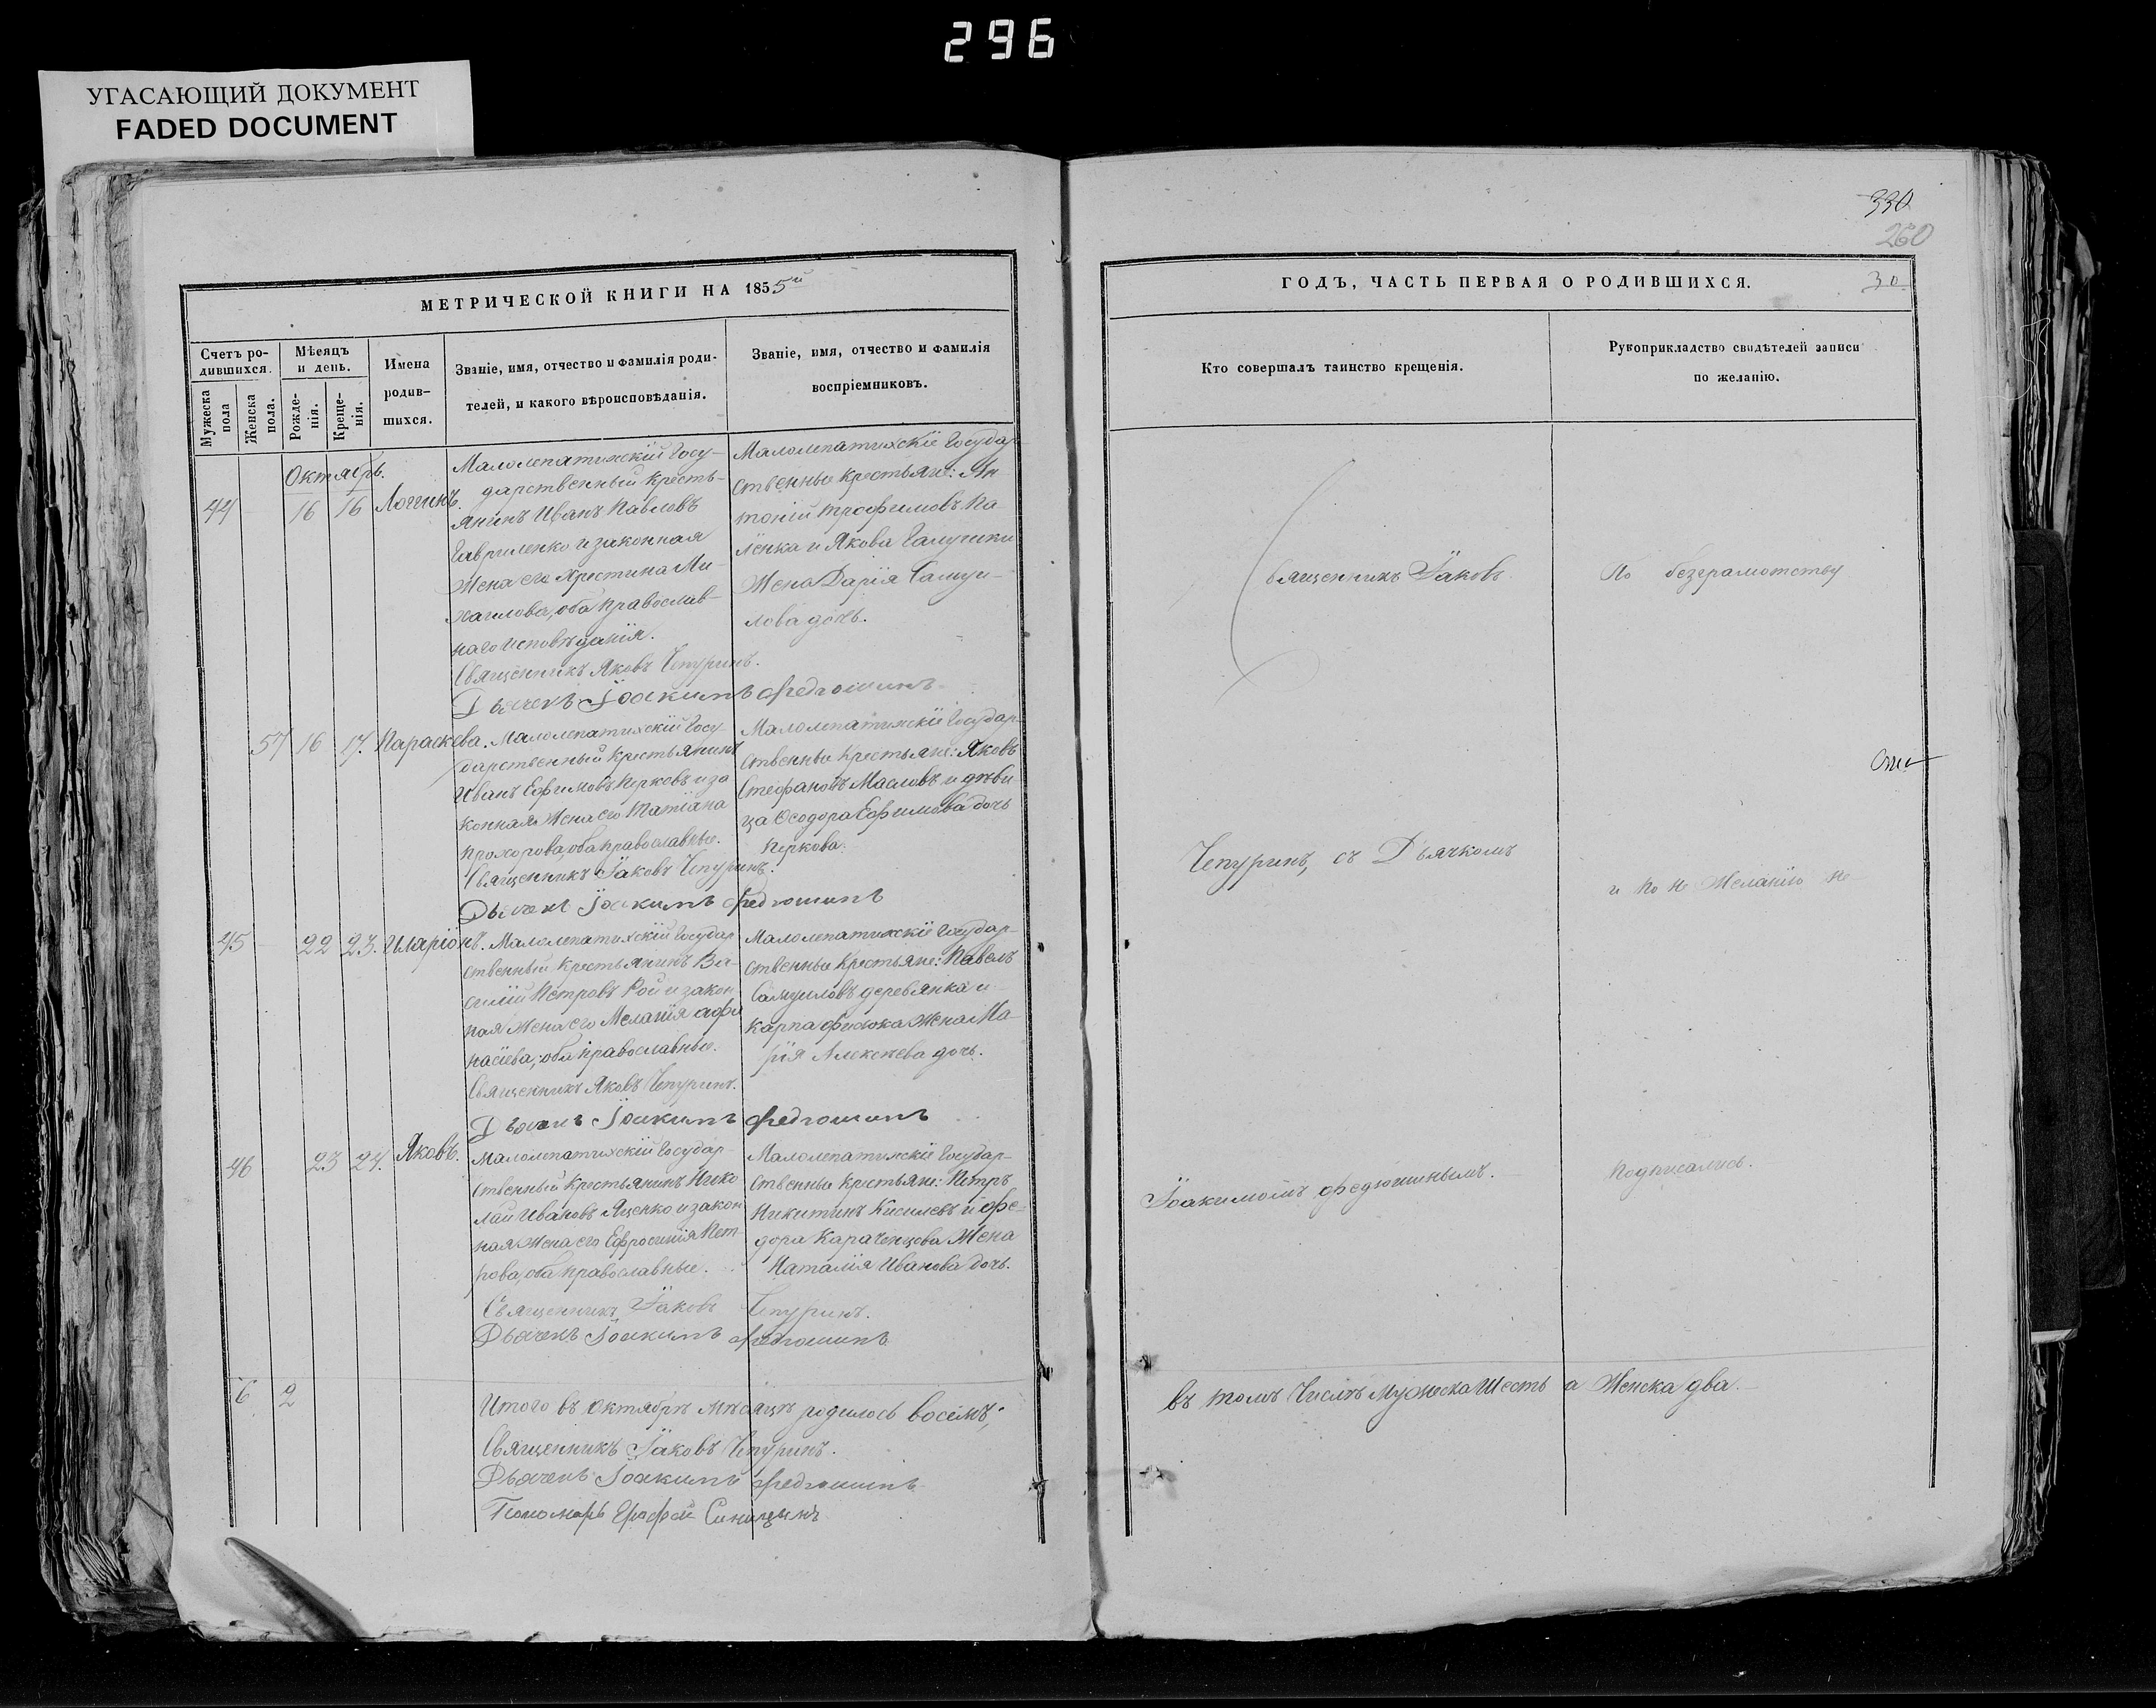 296
УГАСАЮЩИЙ ДОКУМЕНТ
FADED DOCUMENT
МЕТРИЧЕСКОЙ КНИГИ НА 1855й
Счетъ ро-
дившихся.
Мужеска
пола
Женска
пола.
Мѣсяцъ
и день.
Рожде-
нія.
Креще-
нія.
Имена
родив-
шихся.
Званіе, имя, отчество и фамилія роди-
телей, и какого вѣроисповѣданія.
Званіе, имя, отчество и фамилія
воспріемниковъ.
Октябрь.
44 16 16 Логгинъ.
Малолепатихскій Госу-
дарственный кресть-
янинъ Иванъ Павловъ
Гавриленко и законная
жена его Христина Ми-
хаилова, оба православ-
наго исповѣданія.
Священникъ Яковъ Чепуринъ.
Дьячекъ Іоакимъ Федюшинъ
Малолепатихскіе Государ-
ственные крестьяне: Ан
тоній Трофимовъ Па
ленка и Якова Галушки
жена Дарія Самуи-
лова дочь.
57 16 17. Параскева.
Малолепатихскій Госу-
дарственный крестьянинъ
Иванъ Ефимовъ Перковъ и за
конная жена его Татіана
Прохорова, оба православные.
Священникъ Іаковъ Чепуринъ.
Дьячекъ Іоакимъ Федюшинъ
Малолепатихскіе Государ-
ственные крестьяне: Яковъ
Стефановъ Масловъ и дѣви
ца Ѳеодора Ефимова дочь
Перкова.
45 22 23. Иларіонъ.
Малолепатихскій Государ
ственный крестьянинъ Ва-
силій Петровъ Рой и закон
ная жена его Меланія Афа
насіева, оба православные.
Священникъ Яковъ Чепуринъ.
Дьячекъ Іоакимъ Федюшинъ
Малолепатихскіе Государ-
ственные крестьяне: Павелъ
Самуиловъ деревянка и
Карпа жена Ма-
рія Алексѣева дочь.
46 23 24. Яковъ.
Малолепатихскій Государ-
ственный крестьянинъ Нико
лай Ивановъ Яценко и закон
ная жена его Ефросинія Пет
рова, оба православные.
Священникъ Іаковъ Чепуринъ.
Дьячекъ Іоакимъ Федюшинъ
Малолепатихскіе Государ-
ственные крестьяне: Петръ
Никитинъ Киселевъ и Фе-
дора Караченцова жена
Наталія Иванова дочь.
6 2
Итого въ Октябрѣ мѣсяцѣ родилось восемь;
Священникъ Іаковъ Чепуринъ.
Дьячекъ Іоакимъ Федюшинъ
Пономарь Ерофей Синицынъ
330
260
ГОДЪ, ЧАСТЬ ПЕРВАЯ О РОДИВШИХСЯ.
30
Кто совершалъ таинство крещенія.
Рукоприкладство свидѣтелей записи
по желанію.
Священникъ Іаковъ
Чепуринъ, съ Дьячкомъ
Іоакимомъ Федюшинымъ.
По безграмотству
и по не желанію не
подписались.
въ томъ числѣ мужеска шесть а женска два.